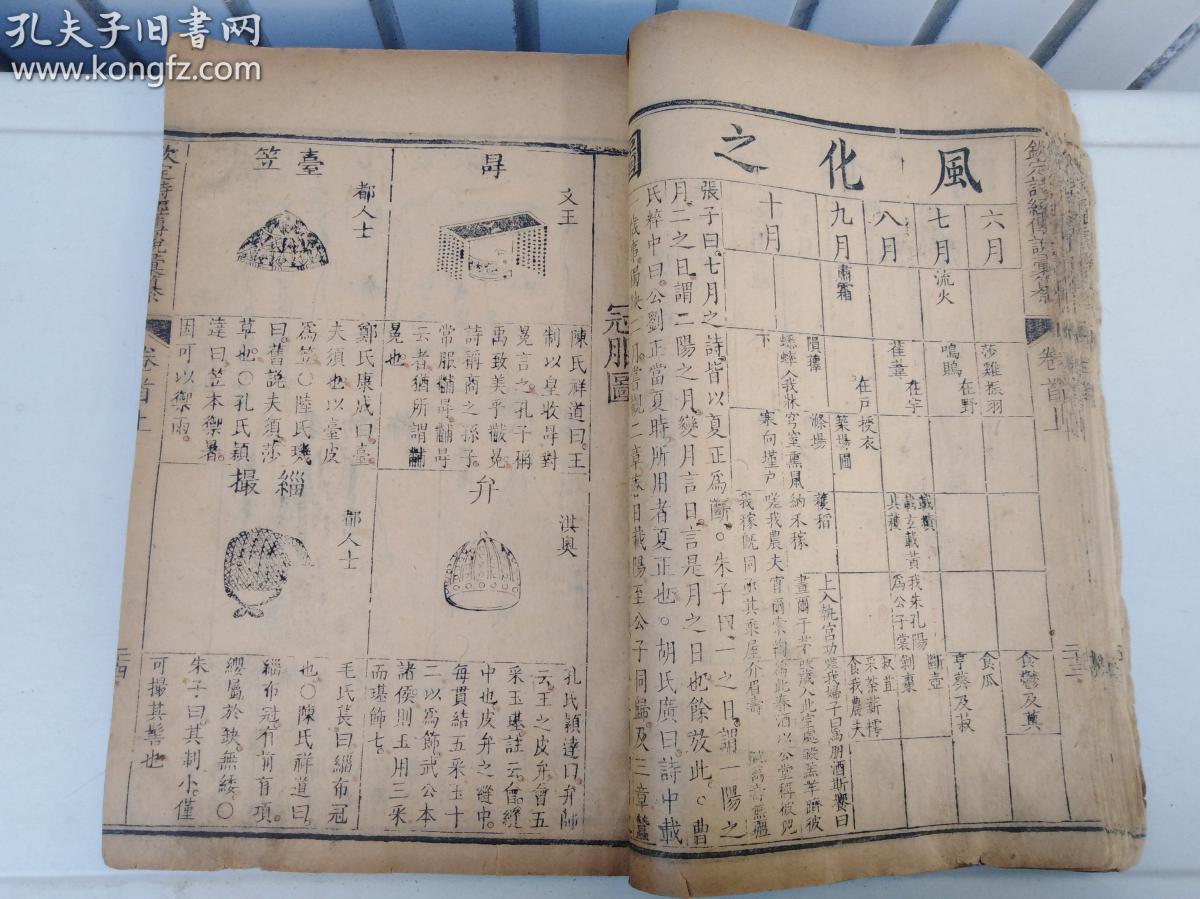 孔夫子旧书网
www.kongfz.com
欽定詩經傳說彙纂
卷首上
風化之圖
六月
七月
八月
九月
十月
流火
肅霜
莎雞振羽
鳴鵙
在野
萑葦
在宇
在戶
隕蘀
蟋蟀入我牀
下
授衣
築場圃
滌場
穹窒熏鼠
塞向墐戶
載績
載玄載黃
我朱孔陽
爲公子裳
其穫
穫稻
納禾稼
嗟我農夫
我稼既同
上入執宮功
晝爾于茅
宵爾索綯
亟其乘屋
爲此春酒
介眉壽
食鬱及薁
食瓜
亨葵及菽
斷壺
剝棗
叔苴
采荼薪樗
食我農夫
朋酒斯饗曰
張子曰七月之詩皆以夏正爲斷○朱子曰一之日謂一陽之
月二之日謂二陽之月變月言日言是月之日也餘放此○曹
氏粹中曰公劉正當夏時所用者夏正也○胡氏廣曰詩中載
冠服圖
冔
文王
陳氏祥道曰王
制以皇收冔對
冕言之孔子稱
禹致美乎黻冕
詩稱商之孫子
常服黼冔黼冔
云者猶所謂黼
冕也
弁
淇奧
孔氏穎達曰弁師
云王之皮弁會五
采玉璂註云會縫
中也皮弁之縫中
每貫結五采玉十
二以爲飾武公本
諸侯則玉用三采
而璂飾七
臺笠
都人士
鄭氏康成曰臺
夫須也以臺皮
爲笠○陸氏璣
曰舊說夫須莎
草也○孔氏穎
達曰笠本禦暑
因可以禦雨
緇撮
都人士
毛氏萇曰緇布冠
也○陳氏祥道曰
緇布冠有頍項
纓屬於缺無緌○
朱子曰其制小僅
可撮其髻也
卷首上